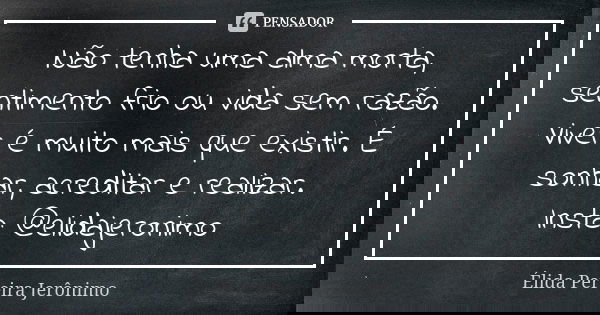 PENSADOR
Não tenha uma alma morta,
sentimento frio ou vida sem razão.
Viver é muito mais que existir. É
sonhar, acreditar e realizar.
Insta @elidajeronimo
Élida Pereira Jerônimo